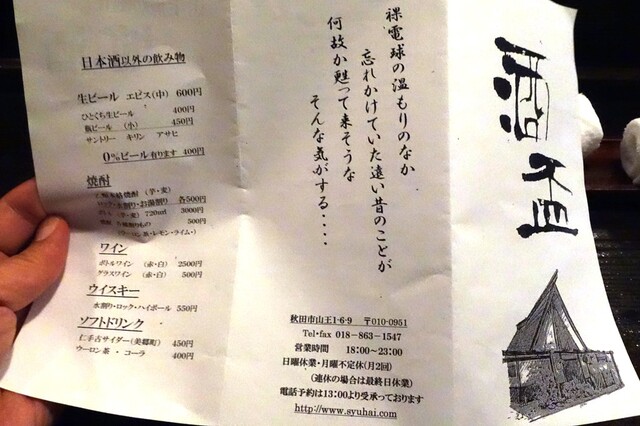 酒盃
裸電球の温もりのなか
忘れかけていた遠い昔のことが
何故か甦って来そうな
そんな気がする・・・・
秋田市山王1-6-9 〒010-0951
Tel・fax 018-863-1547
営業時間 18:00〜23:00
日曜休業・月曜不定休(月2回)
(連休の場合は最終日休業)
電話予約は13:00より受承っております
http://www.syuhai.com
日本酒以外の飲み物
生ビール ヱビス(中) 600円
ひとくち生ビール 400円
瓶ビール (小) 450円
サントリー キリン アサヒ
0%ビール有ります 400円
焼酎
本格焼酎 (芋・麦)
ロック・水割り・お湯割り 各500円
(芋・麦) 720ml 3000円
500円
(ウーロン茶・レモン・ライム・)
ワイン
ボトルワイン (赤・白) 2500円
グラスワイン (赤・白) 500円
ウイスキー
水割り・ロック・ハイボール 550円
ソフトドリンク
仁手古サイダー(美郷町) 450円
ウーロン茶・コーラ 400円